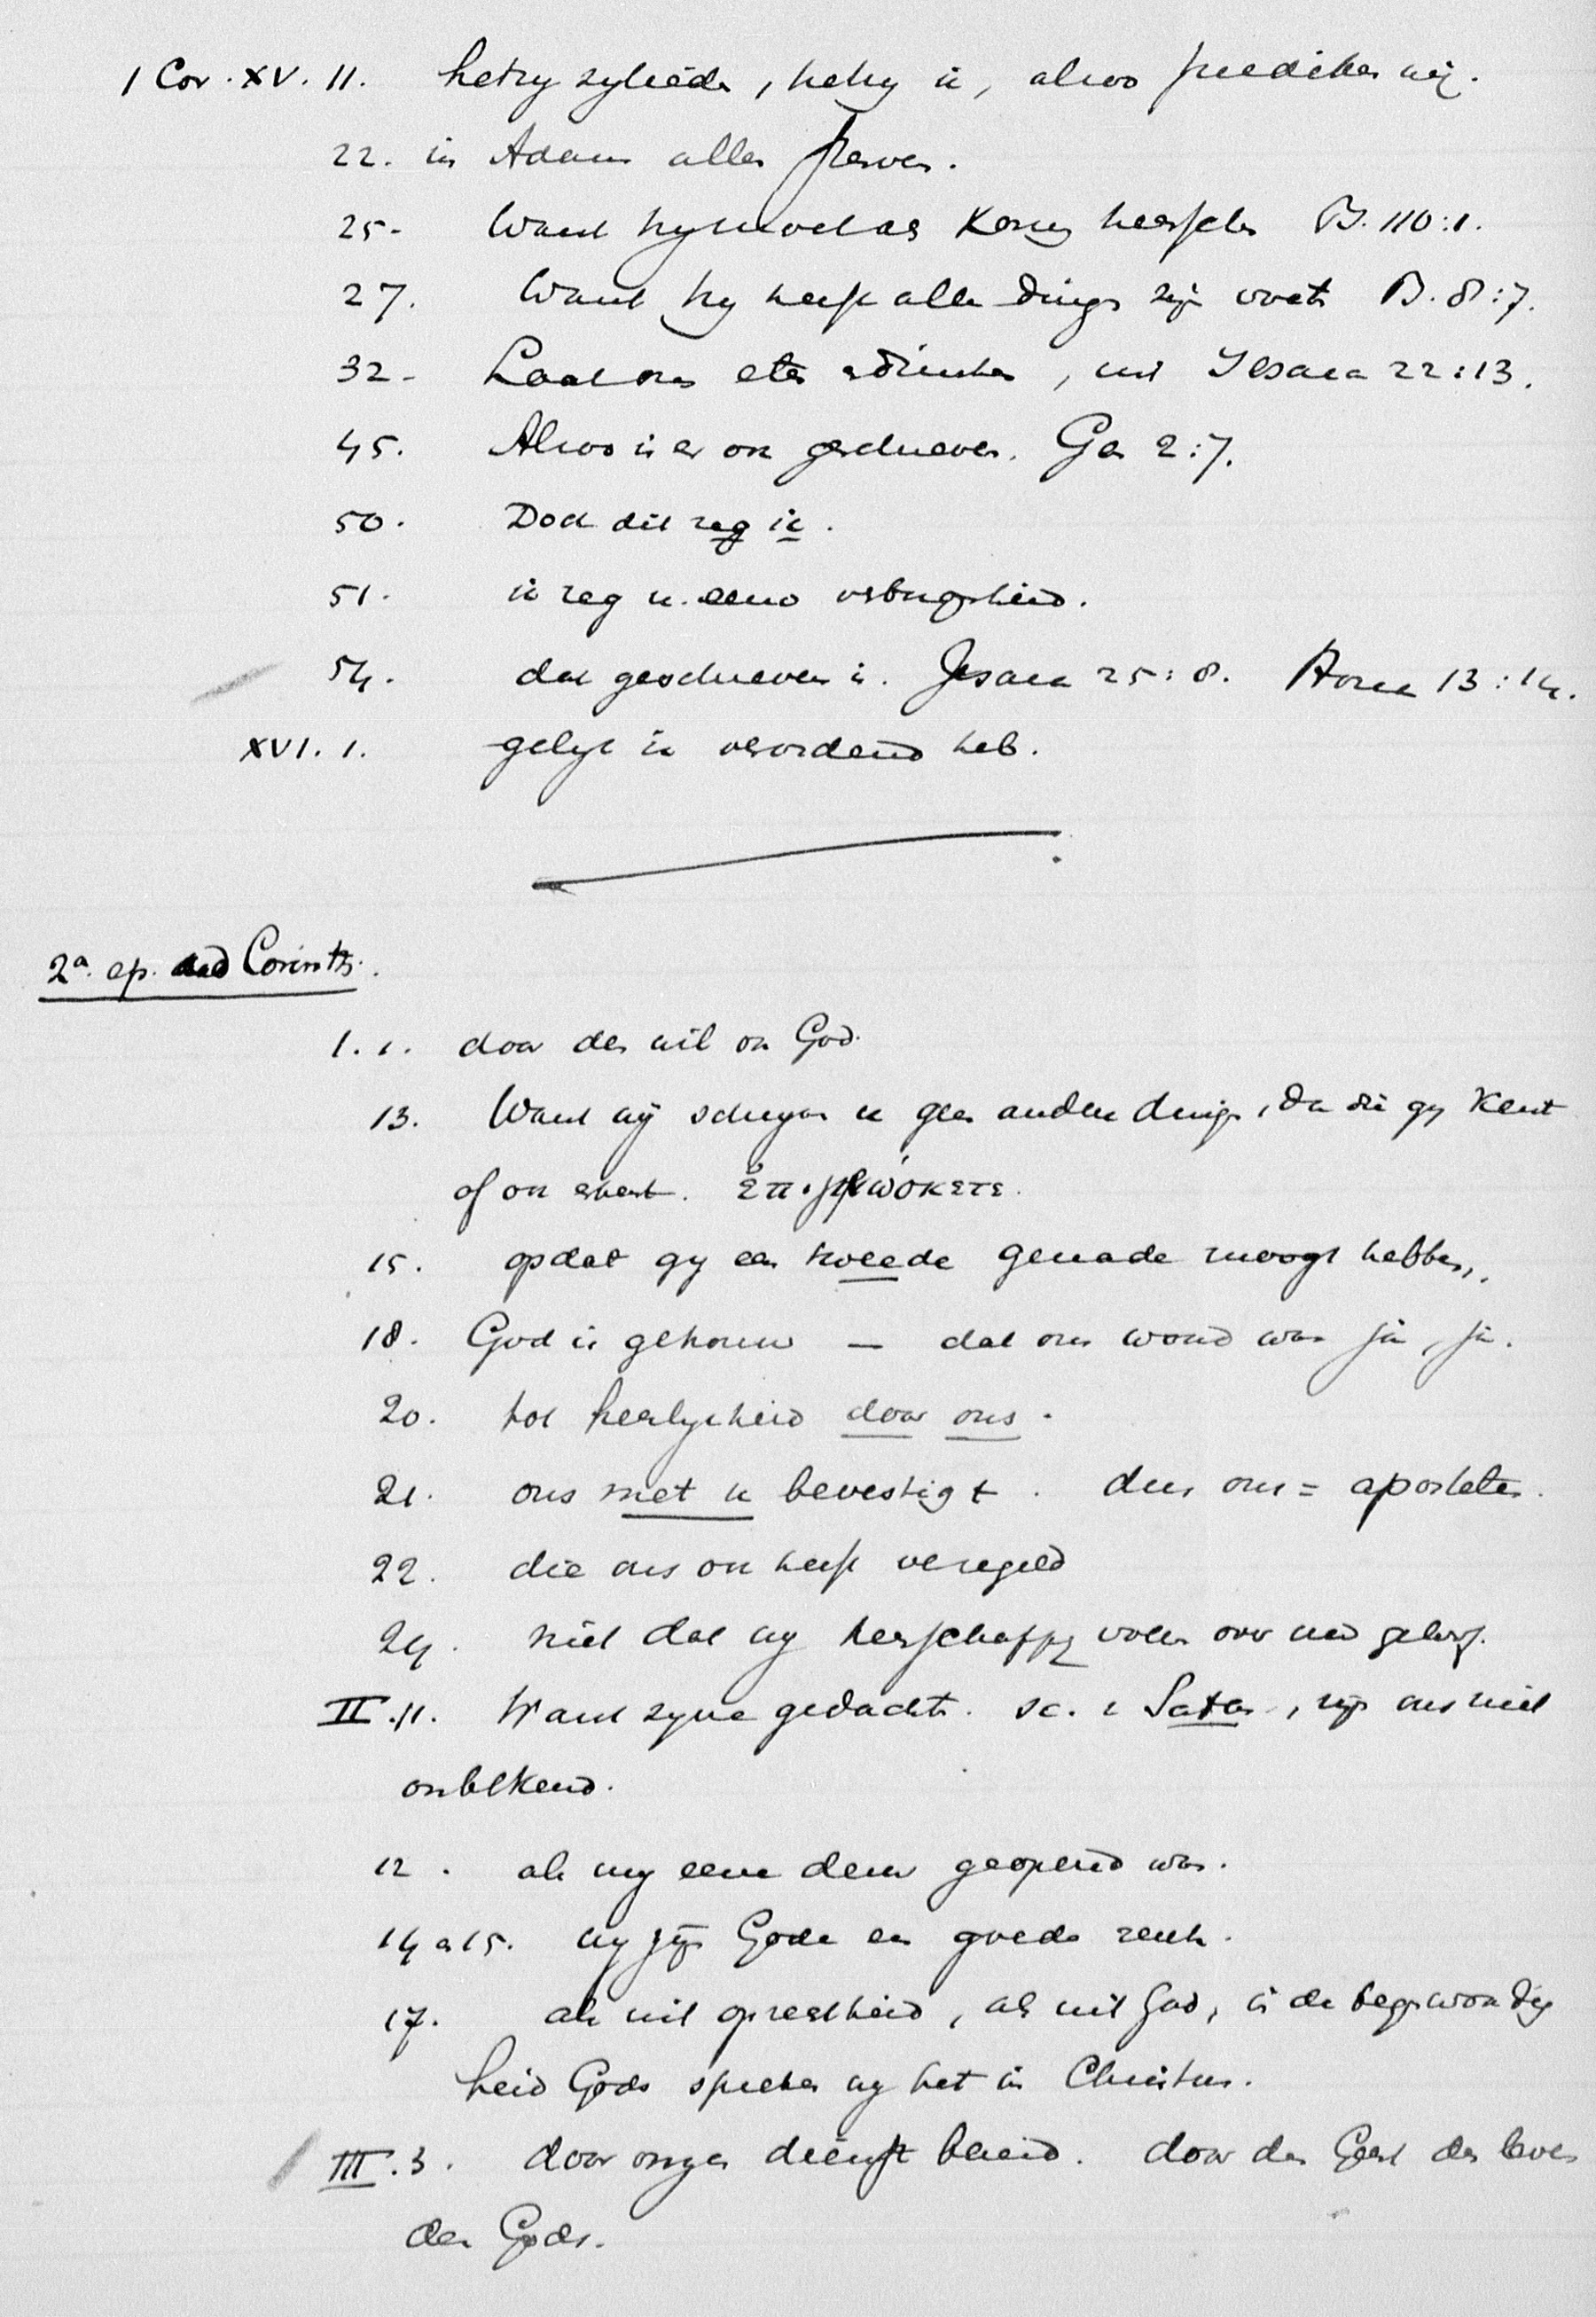 1 Cor. XV. 11. hetzy zylieden, hetzy ik, alzoo prediken wij.
22. in Adam allen sterven.
25. Want hy moet als Koning heerschen Ps. 110:1.
27. Want hy heeft alle dingen zijn voeten Ps. 8:7.
32. Laat ons eten en drinken, uit Jesaia 22:13.
45. Alzoo is er ook geschreven. Gen 2:7.
50. Doch dit zeg ik.
51. ik zeg u eene verborgenheid.
54. dat geschreven is. Jesaia 25:8. Hosea 13:14.
XVI. 1. gelyk ik verordend heb.
2a. ep. ad Corinth.
1. 1. door den wil van God.
13. Want wij schryven u geen andere dingen, dan die gy kent
of ook erkent. ἐπιγινώσκετε.
15. opdat gy een tweede genade moogt hebben,.
18. God is getrouw — dat ons woord was ja, ja.
20. tot heerlykheid door ons.
21. ons met u bevestigt. dus ons = apostelen.
22. die ons ook heeft verzegeld
24. niet dat wy heerschappy voeren over uw geloof.
II. 11. Want zyne gedachten. sc. v Satan, zijn ons niet
onbekend.
12. als my eene deur geopend was.
14 en 15. wy zijn Gode een goede reuk.
17. als uit oprechtheid, als uit God, in de tegenwoordig
heid Gods spreken wy het in Christus.
III. 3. door onzen dienst bereid. door den Geest des leven
den Gods.